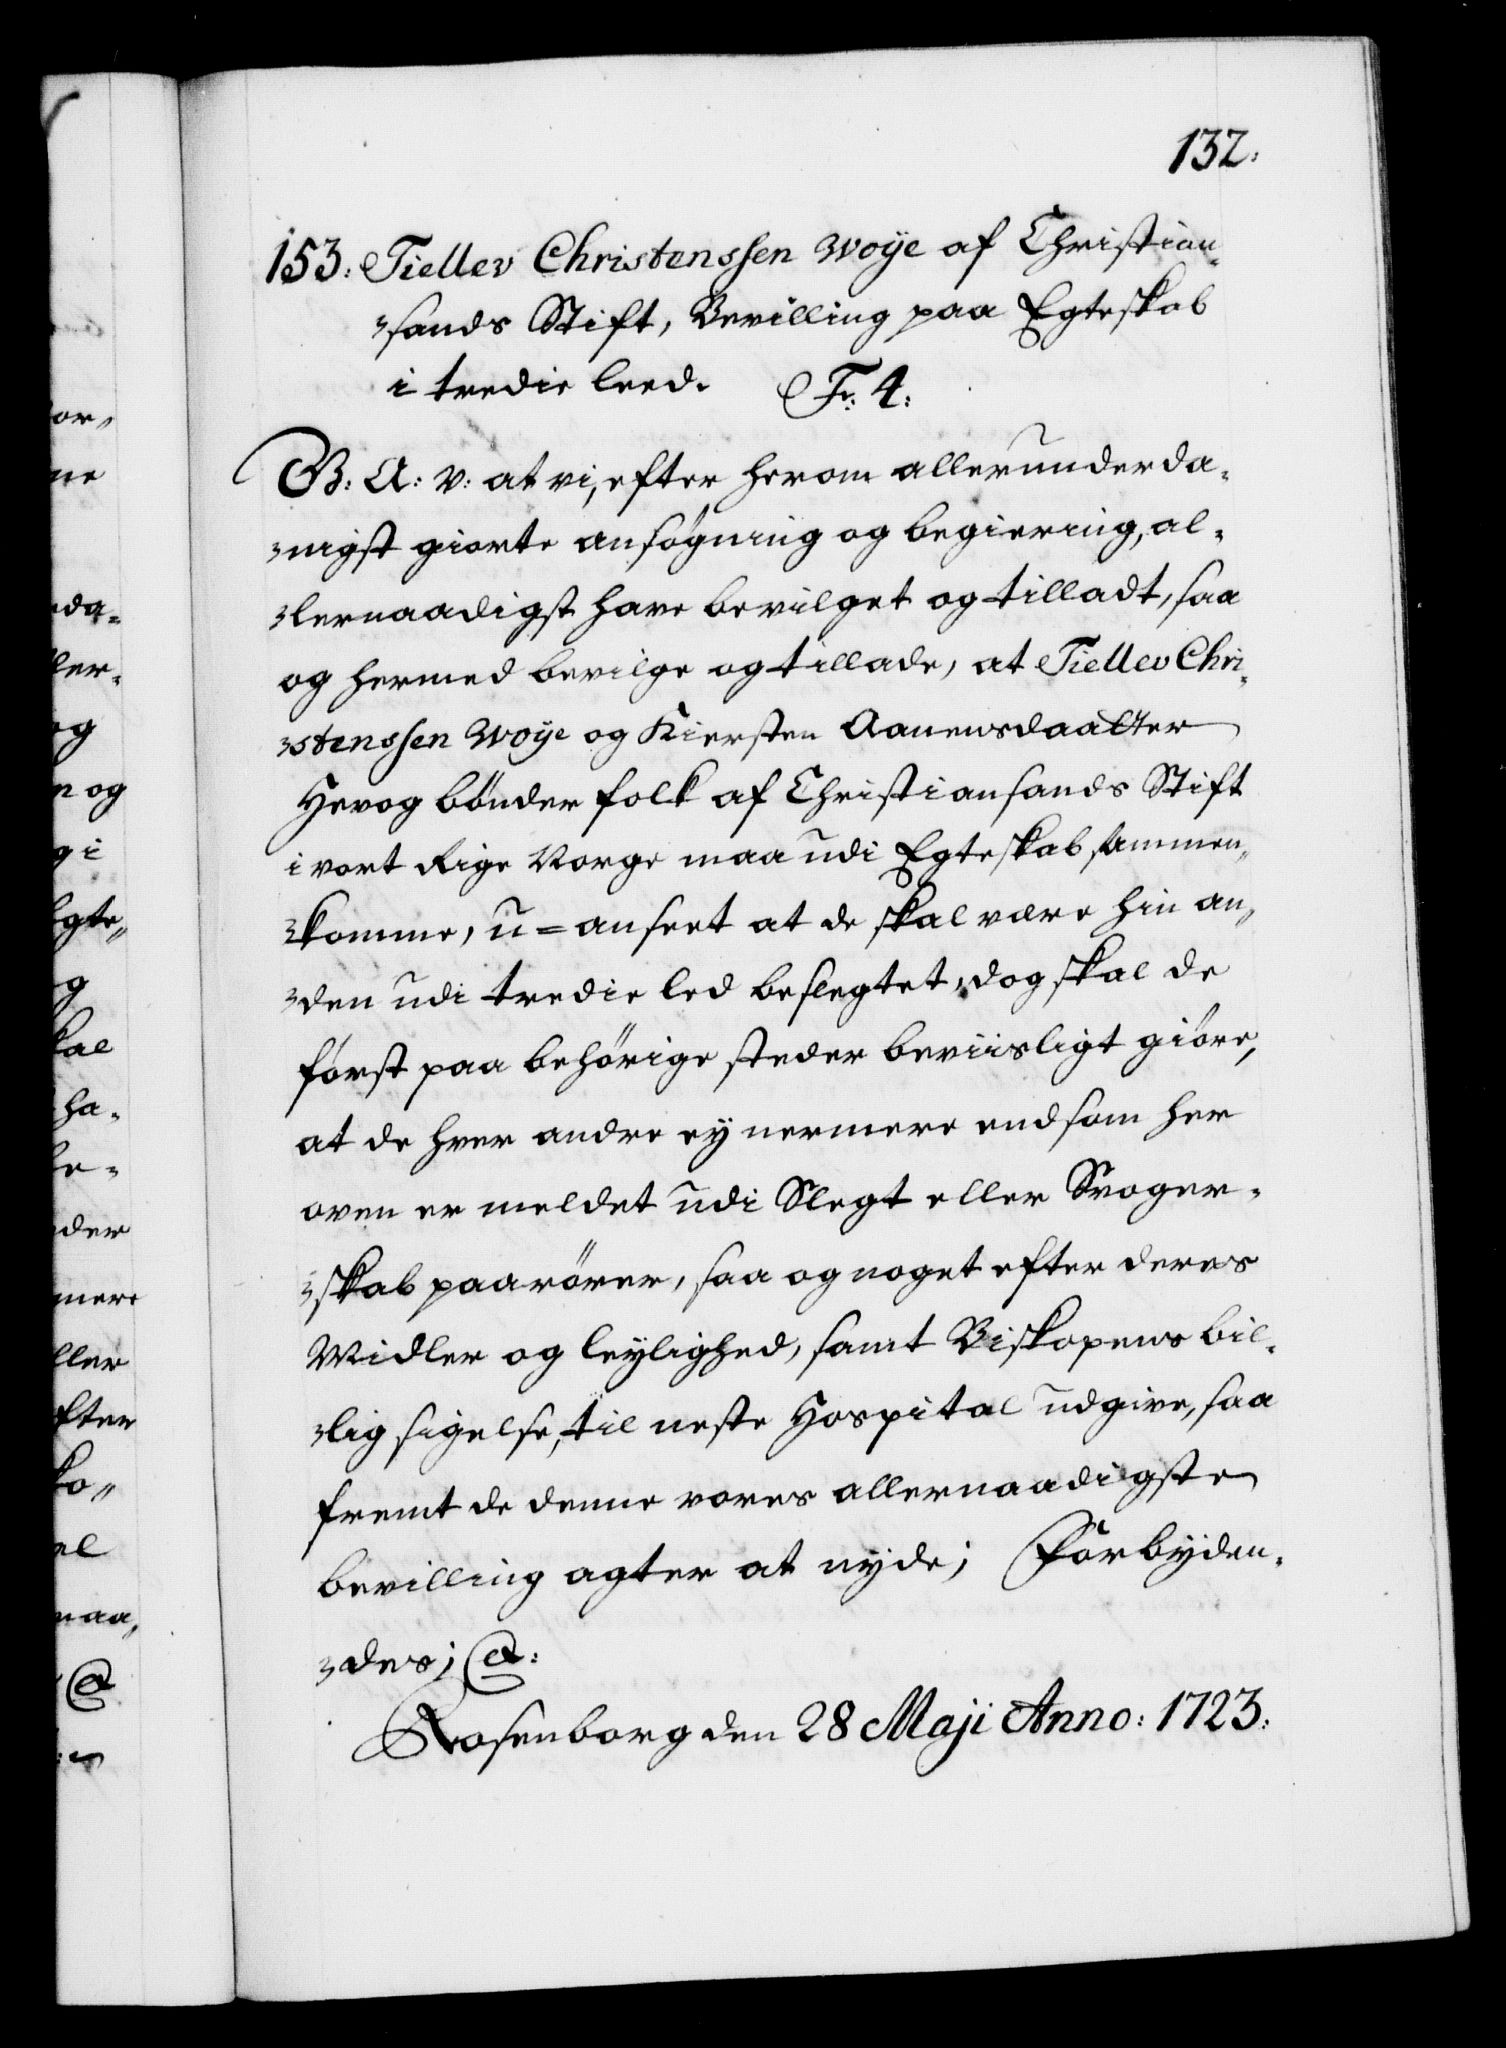 132.
153. Tiellev Christenssen Woÿe af Christian„
„sands Stift, Bevilling paa Egteskab
i tredie leed. Fr. 4:
G: A: V: at vi, efter herom allerunderda„
„nigst giorte ansøgning og begiering, al„
„lernaadigst have bevilget og tilladt, saa
og hermed bevilge og tillade, at Tiellev Chri„
„stenssen Woÿe og Kiersten Aanensdaatter
Hevog bönder folk af Christiansands Stift
i vort Rige Norge maa udi Egteskab sammen„
„komme, u=anseet at de skal være hin an„
„den udi tredie led beslegtet, dog skal de
först paa behörige steder beviisligt giöre,
at de hver andre eÿ nermere end som her
oven er meldet udi Slegt eller Svoger„
„skab paarörer, saa og noget efter deres
Midler og leÿlighed, samt Biskopens bil„
„lig sigelse, til neste Hospital udgive, saa
fremt de denne vores allernaadigste
bevilling agter at nÿde; Forbÿden„
„des; &:
Rosenborg den 28 Maji Anno: 1723:
or„
ne
da„
ler„
og
n og
g i
gte„
g
kal
ha„
e„
der
mere
ller
fter
ko„
el
naa„
&